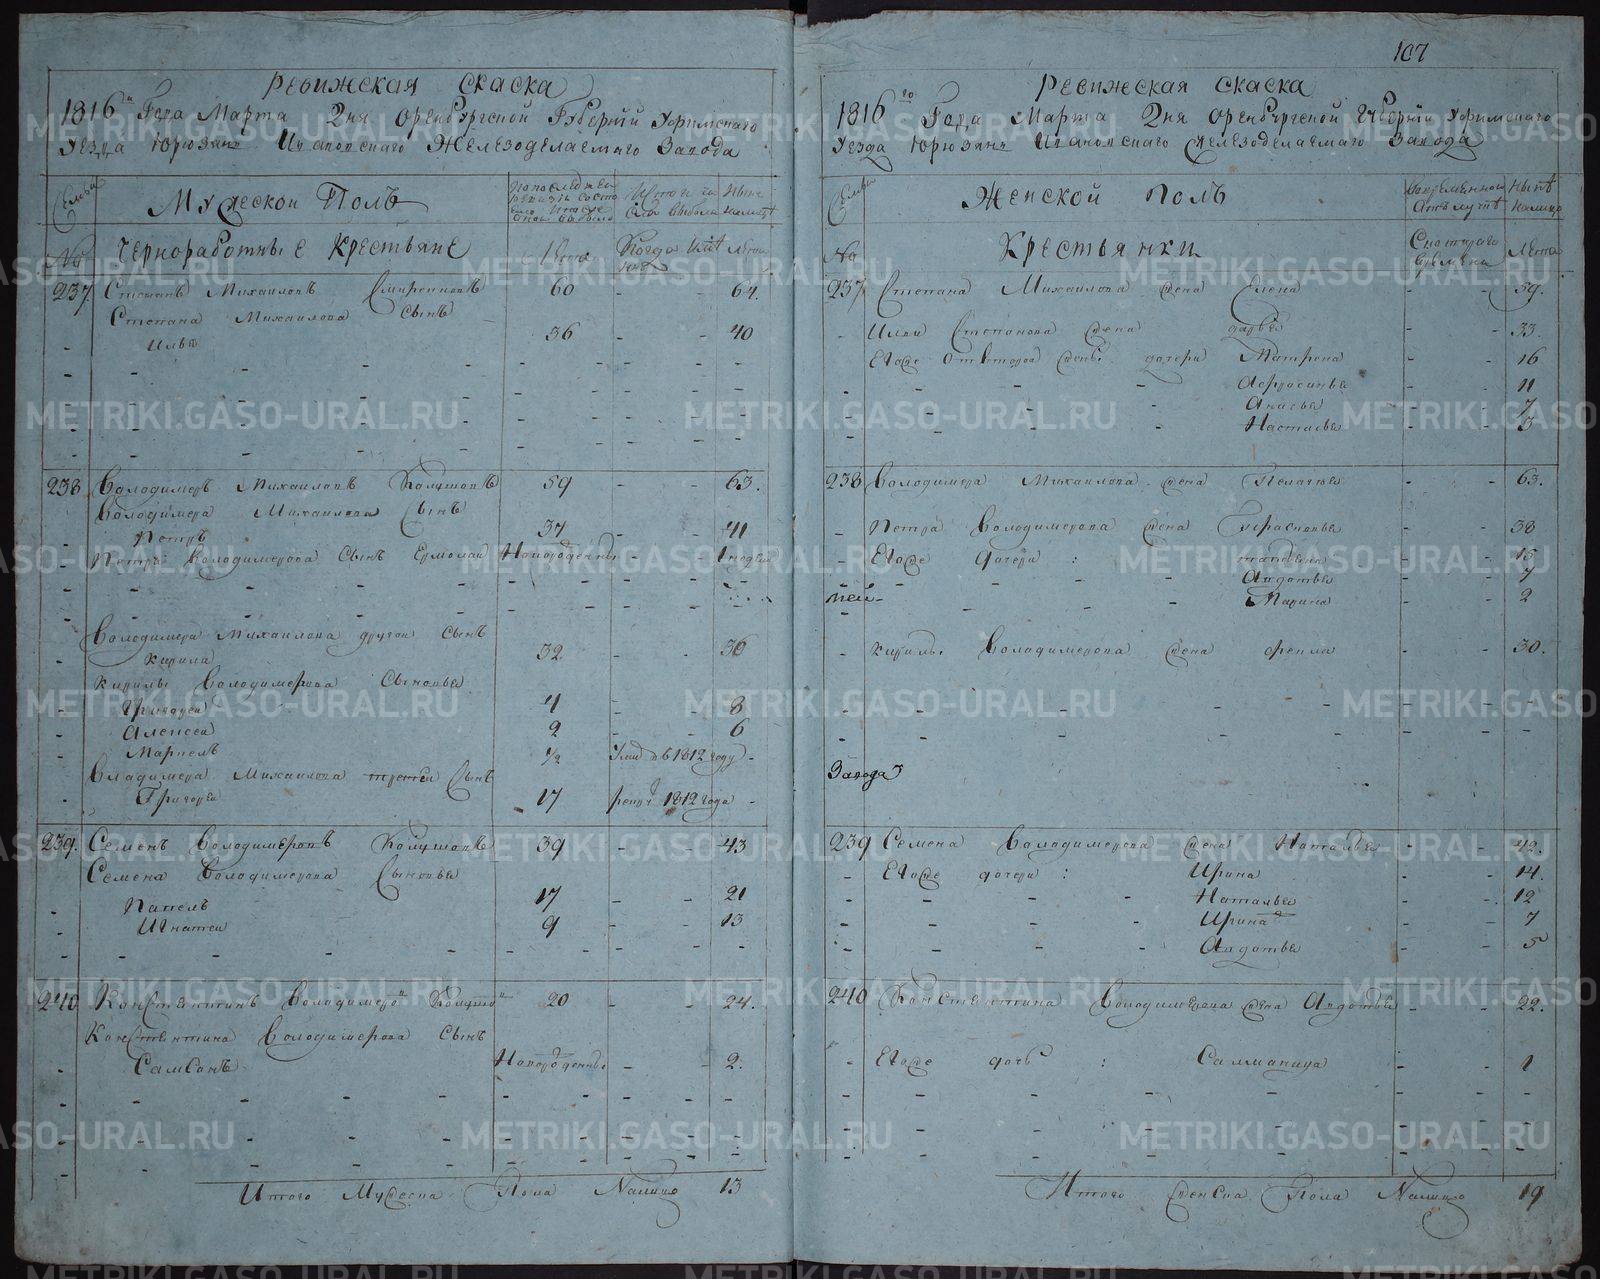 107
Ревижская скаска
1816го Года Марта Дня оренбургской Губерніи Уфимскаго
Уезда Юрюзань Ивановскаго Железоделаемаго Завода
Семьи
Мужеской Полъ
По последней ревизіи состояло и после оной прибыло
Изтого числа выбыло
Ныне налицо
№
Чорноработные Крестьяне
Лета
Когда имянно
Лета
237 Степанъ Михаиловъ 60 - - 64.
Степана Михаилова сынъ
Илья 36 - - 40
238 Володимеръ Михаиловъ Колушовъ 59 - - 63.
Володимера Михаилова Сынъ
Петръ 37 - - 41
Петра Володимерова Сынъ Ермолаи Новорожденны - - 1 недели
Володимера Михаилова другои сынъ
Кирила 32 - - 36
Кирилы Володимерова Сыновья
Григореи 4 - - 8
Алексеи 2 - - 6
Маркелъ 1/2 Умре въ 1812 году -
Владимера Михаилова третеи Сынъ
Григореи 17 рекрутъ 1812 года -
239. Семенъ Володимеровъ Колушовъ 39 - - 43
Семена Володимерова Сыновья
Павелъ 17 - - 21
Игнатеи 9 - - 13
240 Константинъ Володимеровъ Колушовъ 20 - - 24.
Константина Володимерова Сынъ
Самсонъ Новорожденны - - 2.
Итого Мужеска Пола Налицо 13
Ревижская скаска
1816го Года Марта Дня оренбургской Губерніи Уфимскаго
Уезда Юрюзань Ивановскаго железоделаемаго Завода
Семьи
Женской Полъ
Во временной отлучке
Ныне налицо
№
Крестьянки
С котораго времяни
Лета
237 Степана Михаилова жена Елена - - 59.
Ильи Степанова жена дарья - - 33.
Егоже от второй жены дочери Матрена - - 16
Афросинья - - 11
Анисья - - 7
Насталья - - 3
238 Володимера Михаилова жена Пелагея - - 63.
Петра Володимерова жена Парасковья - - 38
Егоже Дочери : татьяна - - 15
Авдотья - - 7
мей- Марина - - 2
Кирилы Володимерова жена фекла - - 30.
Завода
239 Семена Володимерова жена Наталья - - 42.
Егоже дочери : Ирина - - 14.
Наталья - - 12
Ирина - - 7
Авдотья - - 5
240 Константина Володимерова жена Авдотья - - 22.
Егоже дочь : Саламанида - - 1
Итого женска Пола Налицо 19
METRIKI.GASO-URAL.RU